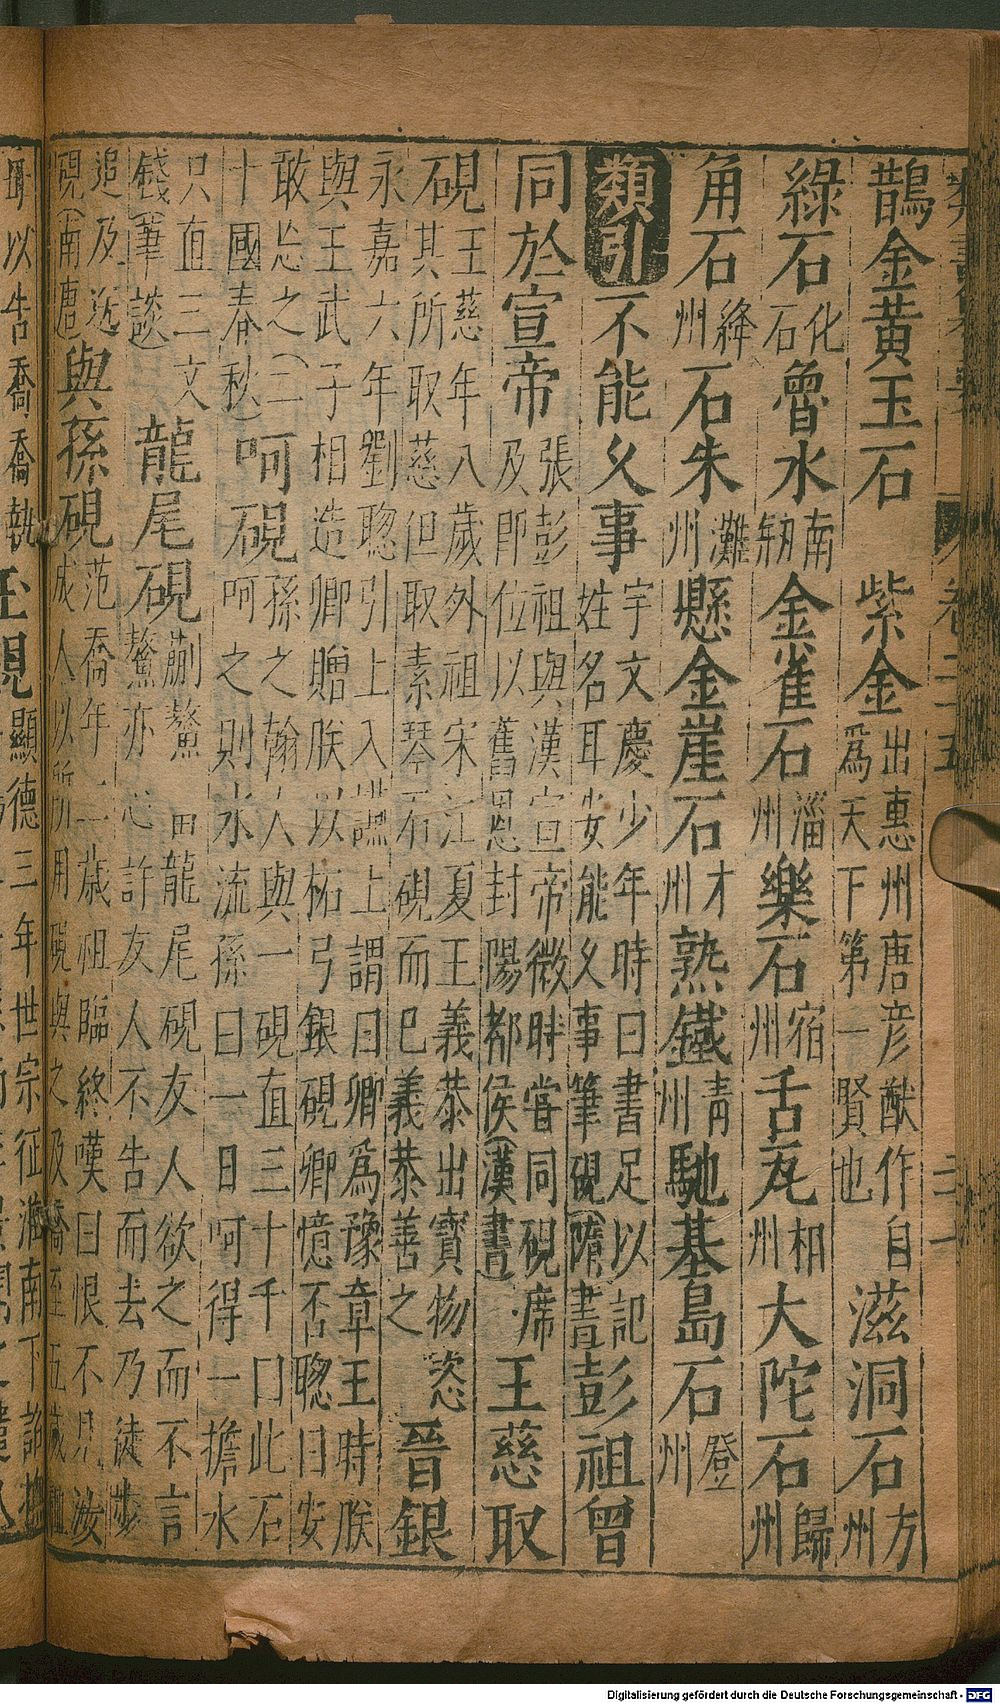 鵲金黃玉石 紫金出惠州唐彥猷作自
爲天下第一賢也 滋洞石方州
綠石化石 魯水南 金雀石淄州 樂石宿州 舌瓦相州 大陀石歸州
角石絳州 石朱灘州 懸金崖石才州 熟鐵青州 馳基島石登州
類引 不能久事宇文慶少年時曰書足以記
姓名耳安能久事筆硯(隋書 彭祖曾
同於宣帝張彭祖與漢宣帝微時嘗同硯席
及即位以舊恩封陽都侯(漢書 王慈取
硯王慈年八歲外祖宋江夏王義恭出寶物恣
其所取慈但取素琴石硯而已義恭善之 晉銀
永嘉六年劉聰引上入讌上謂曰卿爲豫章王時朕
與王武子相造卿贈朕以柘弓銀硯卿憶否聰曰安
敢忘之(三
十國春秋 呵硯孫之翰人與一硯直三十千口此石
呵之則水流孫曰一日呵得一擔水
只直三文
錢(筆談 龍尾硯蒯鰲 龍尾硯友人欲之而不言
鰲亦心許友人不告而去乃徒步
追及送
硯(南唐 與孫硯范喬年二歲祖臨終嘆曰恨不見汝
成人以所用硯與之及喬至五歲祖
母以告喬喬執
玉硯顯德三年世宗征淮南下
Digitalisierung gefördert durch die Deutsche Forschungsgemeinschaft - DFG